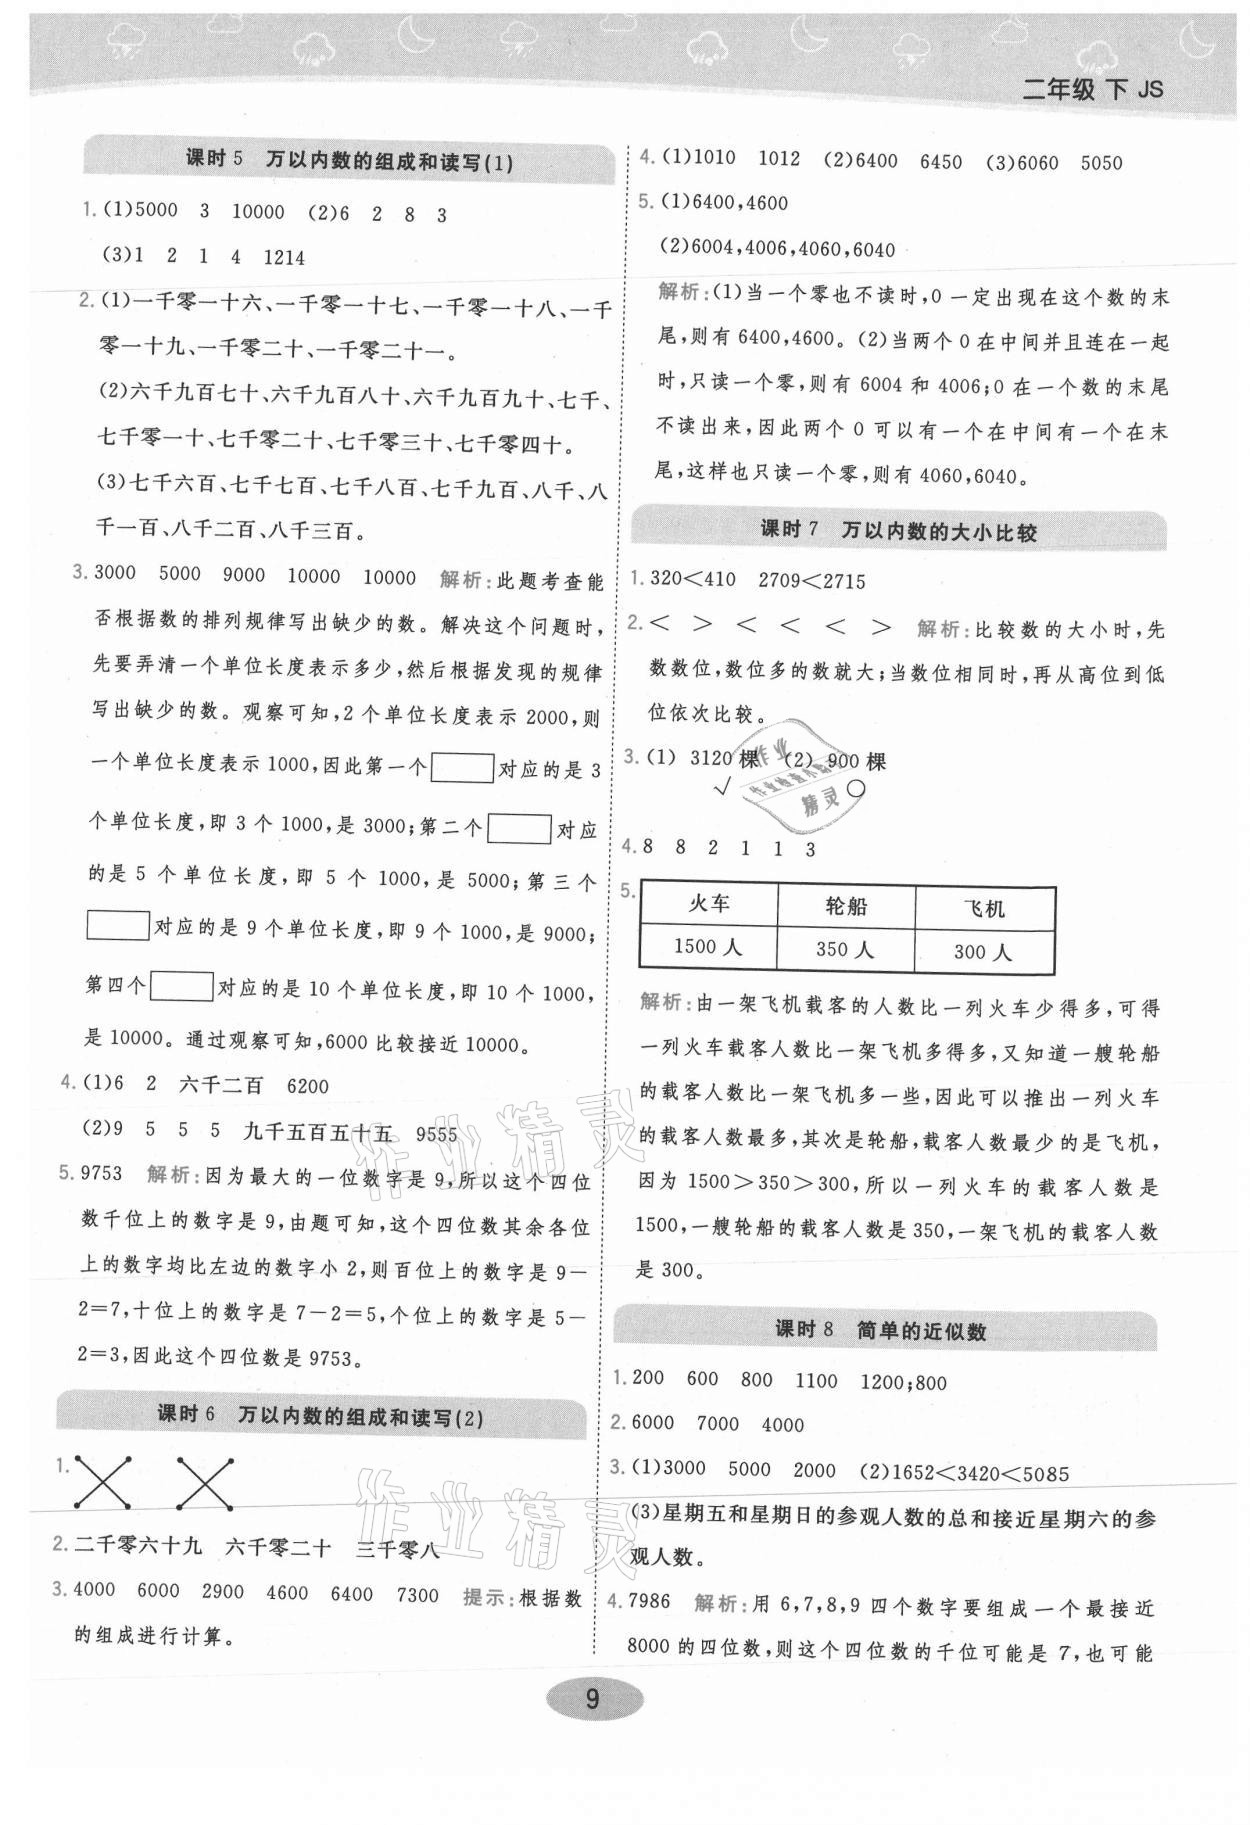 二年级 下 JS
课时 5 万以内数的组成和读写(1)
1. (1)5000 3 10000 (2)6 2 8 3
(3)1 2 1 4 1214
2. (1)一千零一十六、一千零一十七、一千零一十八、一千
零一十九、一千零二十、一千零二十一。
(2)六千九百七十、六千九百八十、六千九百九十、七千、
七千零一十、七千零二十、七千零三十、七千零四十。
(3)七千六百、七千七百、七千八百、七千九百、八千、八
千一百、八千二百、八千三百。
3. 3000 5000 9000 10000 10000 解析:此题考查能
否根据数的排列规律写出缺少的数。解决这个问题时,
先要弄清一个单位长度表示多少,然后根据发现的规律
写出缺少的数。观察可知,2 个单位长度表示 2000,则
一个单位长度表示 1000,因此第一个 对应的是 3
个单位长度,即 3 个 1000,是 3000;第二个 对应
的是 5 个单位长度,即 5 个 1000,是 5000;第三个
对应的是 9 个单位长度,即 9 个 1000,是 9000;
第四个 对应的是 10 个单位长度,即 10 个 1000,
是 10000。通过观察可知,6000 比较接近 10000。
4. (1)6 2 六千二百 6200
(2)9 5 5 5 九千五百五十五 9555
5. 9753 解析:因为最大的一位数字是 9,所以这个四位
数千位上的数字是 9,由题可知,这个四位数其余各位
上的数字均比左边的数字小 2,则百位上的数字是 9－
2＝7,十位上的数字是 7－2＝5,个位上的数字是 5－
2＝3,因此这个四位数是 9753。
课时 6 万以内数的组成和读写(2)
1.
2. 二千零六十九 六千零二十 三千零八
3. 4000 6000 2900 4600 6400 7300 提示:根据数
的组成进行计算。
4. (1)1010 1012 (2)6400 6450 (3)6060 5050
5. (1)6400,4600
(2)6004,4006,4060,6040
解析:(1)当一个零也不读时,0 一定出现在这个数的末
尾,则有 6400,4600。(2)当两个 0 在中间并且连在一起
时,只读一个零,则有 6004 和 4006;0 在一个数的末尾
不读出来,因此两个 0 可以有一个在中间有一个在末
尾,这样也只读一个零,则有 4060,6040。
课时 7 万以内数的大小比较
1. 320＜410 2709＜2715
2. ＜ ＞ ＜ ＜ ＜ ＞ 解析:比较数的大小时,先
数数位,数位多的数就大;当数位相同时,再从高位到低
位依次比较。
3. (1) 3120 棵 (2) 900 棵
√ ○
4. 8 8 2 1 1 3
5.
火车 轮船 飞机
1500 人 350 人 300 人
解析:由一架飞机载客的人数比一列火车少得多,可得
一列火车载客人数比一架飞机多得多,又知道一艘轮船
的载客人数比一架飞机多一些,因此可以推出一列火车
的载客人数最多,其次是轮船,载客人数最少的是飞机,
因为 1500＞350＞300,所以一列火车的载客人数是
1500,一艘轮船的载客人数是 350,一架飞机的载客人数
是 300。
课时 8 简单的近似数
1. 200 600 800 1100 1200;800
2. 6000 7000 4000
3. (1)3000 5000 2000 (2)1652＜3420＜5085
(3)星期五和星期日的参观人数的总和接近星期六的参
观人数。
4. 7986 解析:用 6,7,8,9 四个数字要组成一个最接近
8000 的四位数,则这个四位数的千位可能是 7,也可能
9
作业精灵
作业精灵
作业
作业检查小助手
精灵